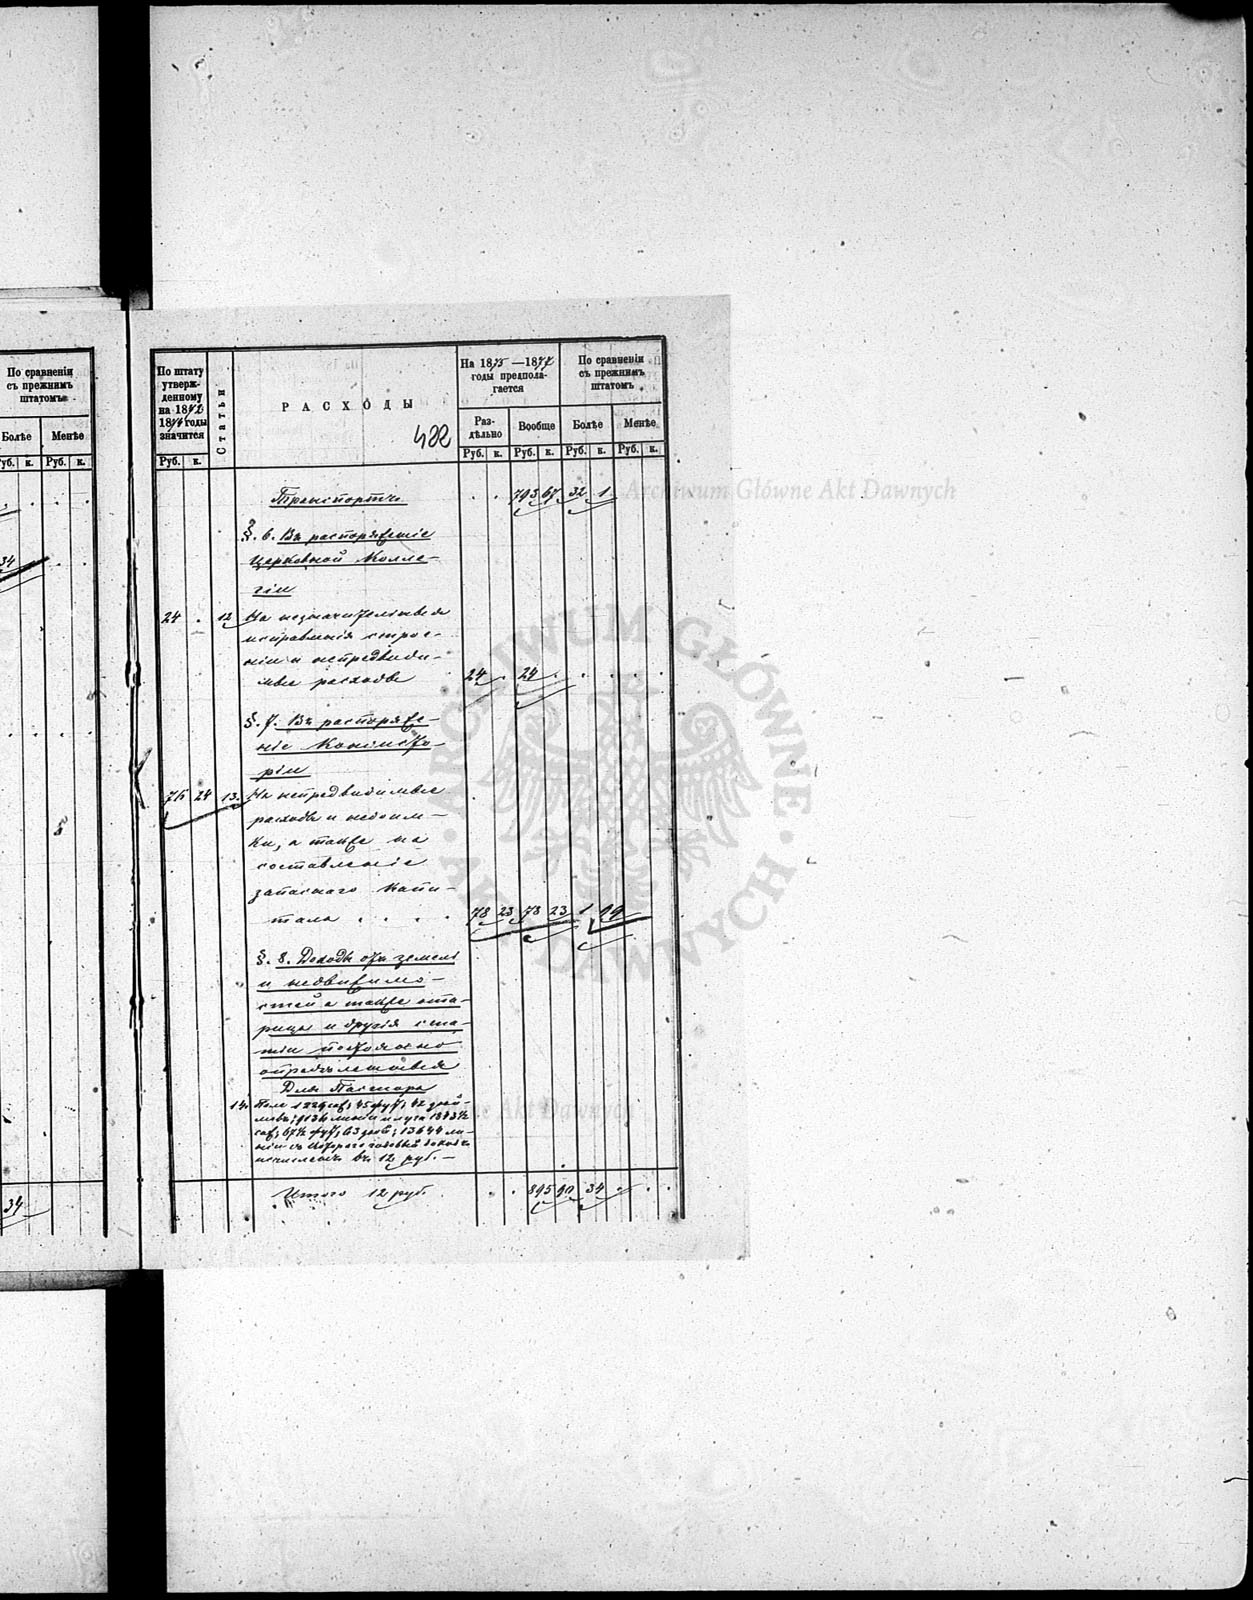 По сравненіи
съ прежнимъ
штатомъ
Болѣе Менѣе
Руб. к. Руб. к.
34
34
По штату
утверж-
денному
на 1872
1874 годы
значится
Статьи
РАСХОДЫ
422
На 1875—1877
годы предпола-
гается
По сравненіи
съ прежнимъ
штатомъ
Раз-
дѣльно
Вообще
Болѣе
Менѣе
Руб. к. Руб. к. Руб. к. Руб. к. Руб. к.
Транспортъ 793 67 32 1
§. 6. Въ распоряженіе
Церковной Колле-
гіи
24 . 12 На незначительныя
исправленія строе-
ній и непредвиди-
мые расходы 24 . 24 .
§. 7. Въ распоряже-
ніе Консисто-
ріи
24 13. На непредвидимые
расходы и недоим-
ки, а также на
составленіе
запаснаго капи-
тала 78 23 78 23 1 99
§. 8. Доходы отъ земель
и недвижимо-
стей а также
и другія ста-
тьи
Для Пастора
14.
исчисленъ въ 12 руб.—
Итого 12 руб. 895 90 34
Archiwum Główne Akt Dawnych
ARCHIWUM GŁÓWNE · AKT DAWNYCH ·
Akt Dawnych